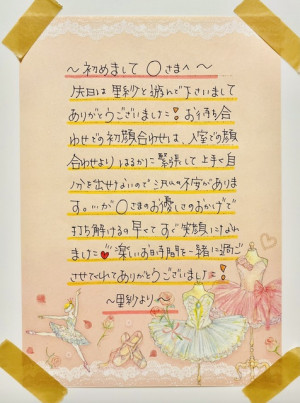 ～初めまして ○さまへ～
先日は 里紗と遊んで下さいまして
ありがとうございました❣お待ち合
わせでの初顔合わせは、入室での顔
合わせより はるかに緊張して 上手く自
分を出せないので 沢山不安がありま
す。…が ○さまのお優しさのおかげで
打ち解けるの早くて すぐ笑顔になれ
ました♥楽しいお時間を一緒に過ご
させてくれてありがとうございました❣
～里紗より～